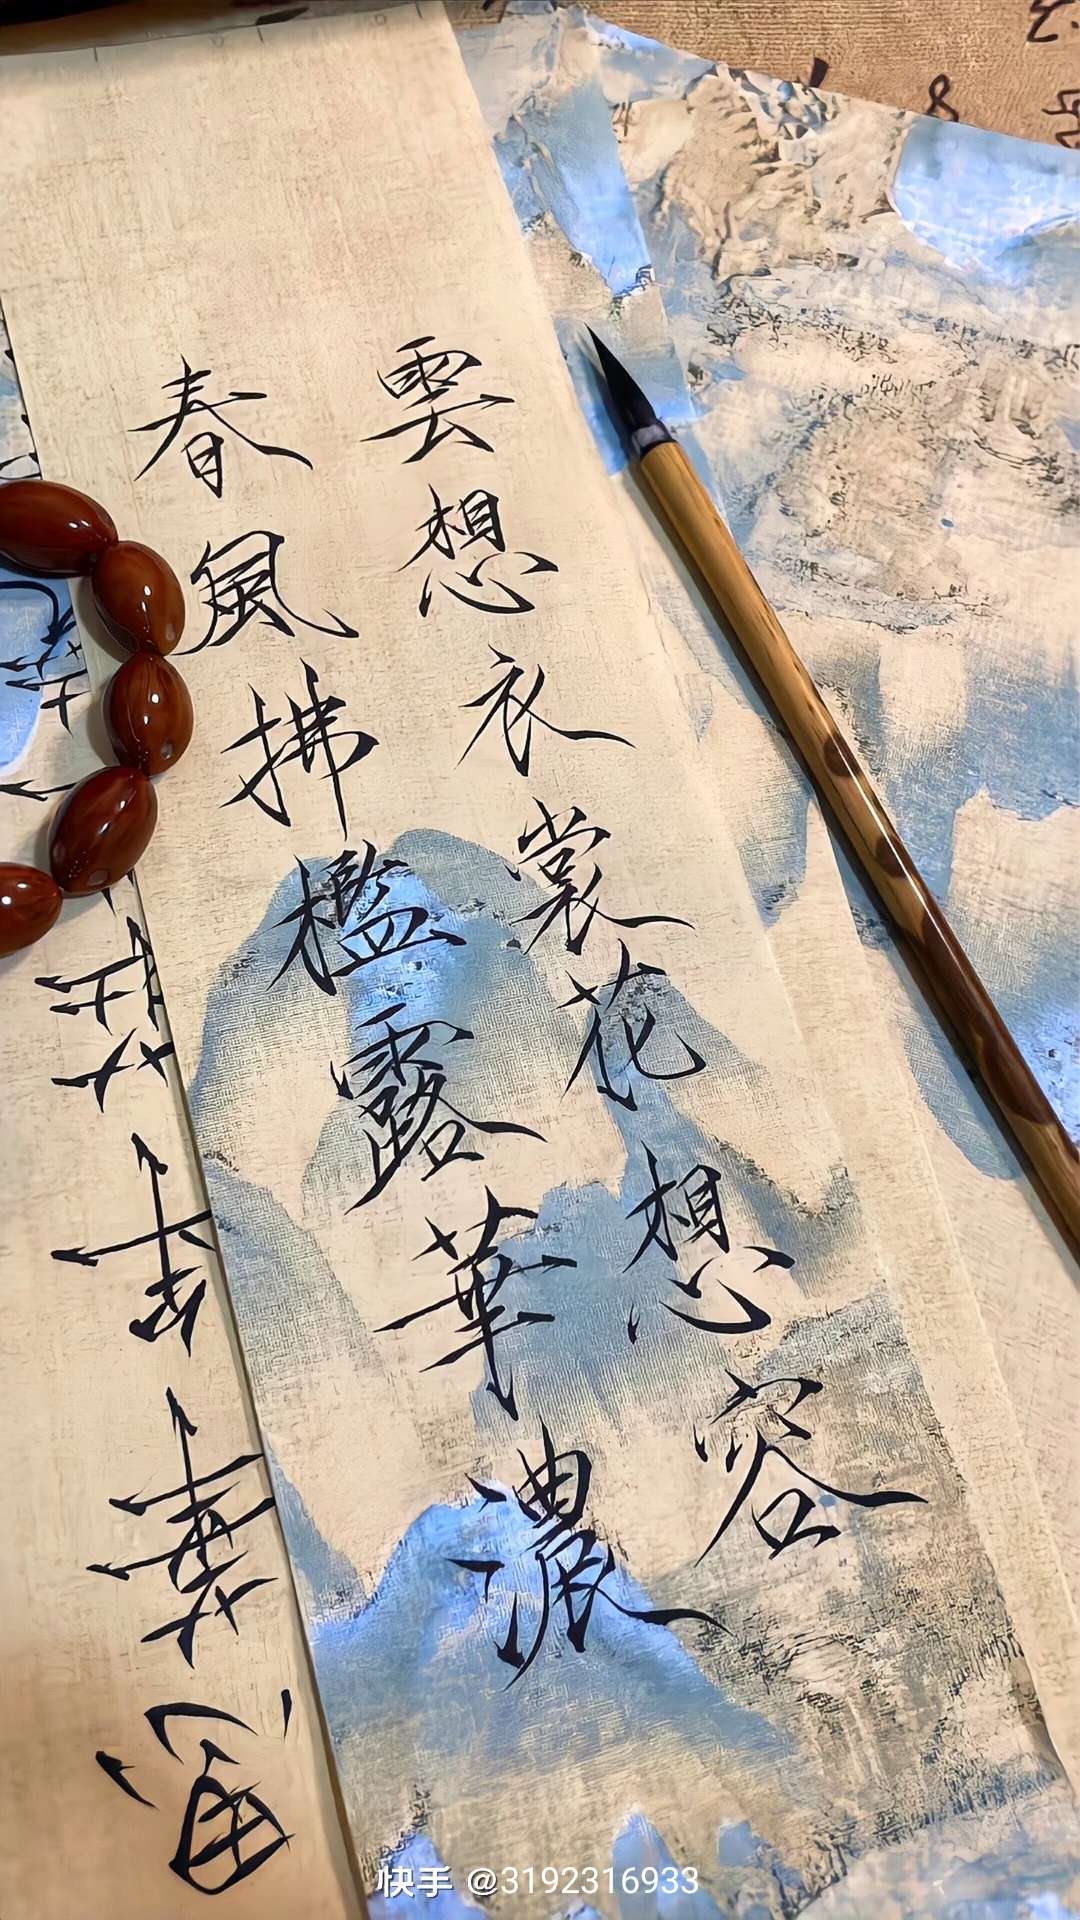 雲想衣裳花想容
春風拂檻露華濃
快手 @3192316933